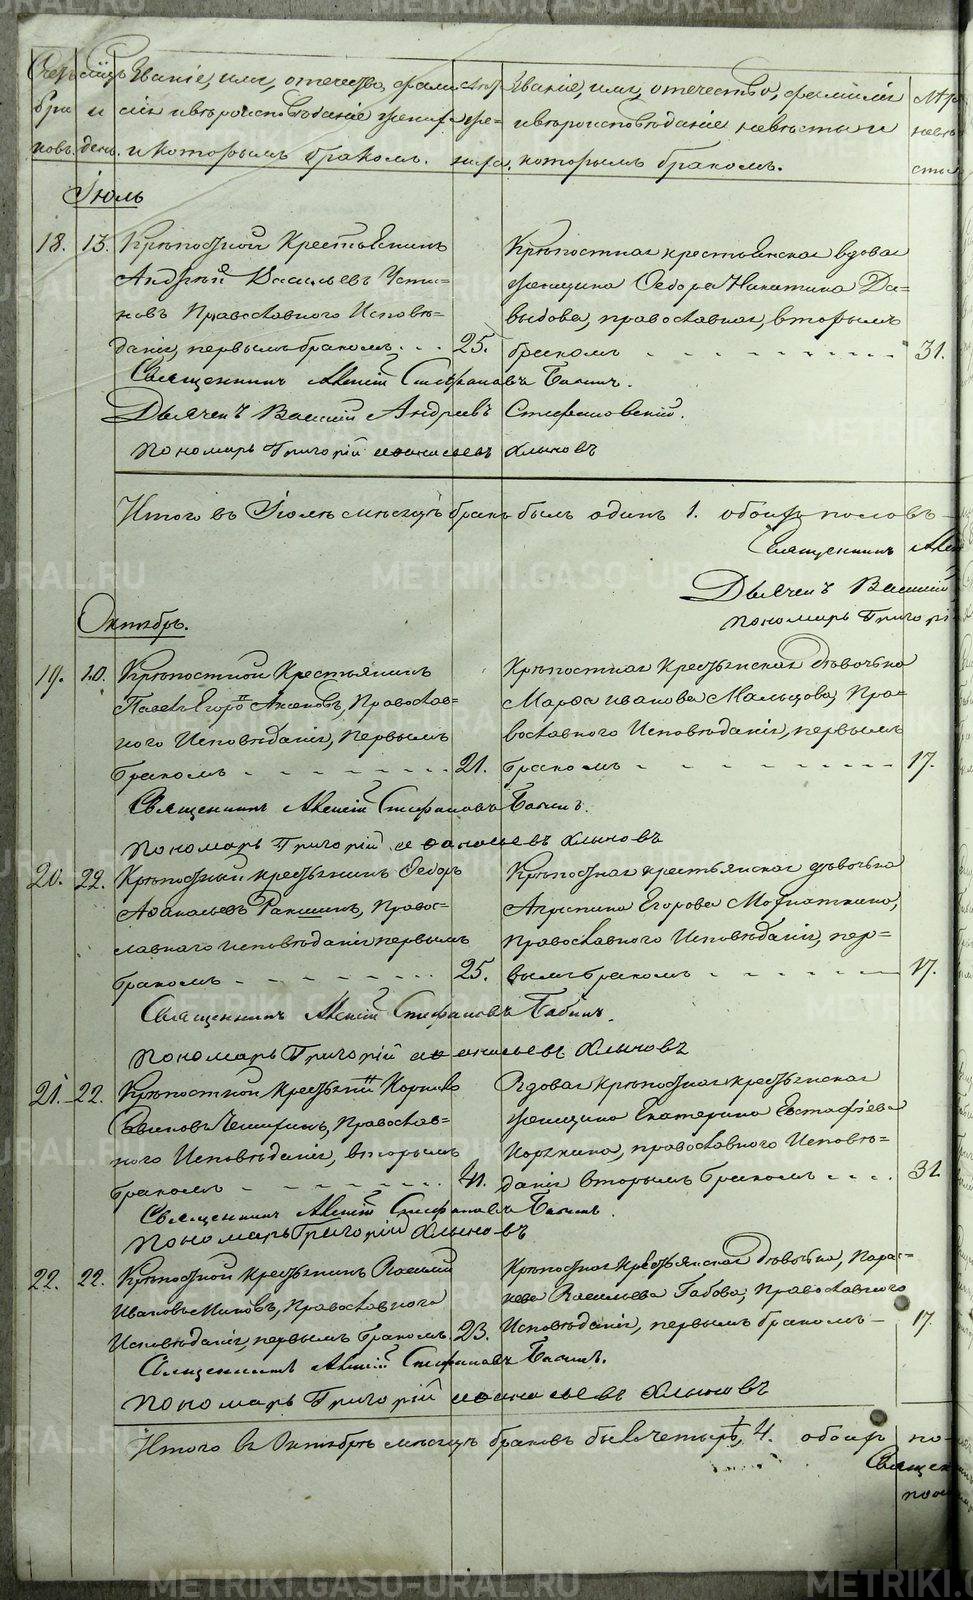 Счетъ браковъ.
мѣсяцъ и день.
Званіе, имя, отечество, фамилія и вѣроисповѣданіе жениха и которымъ бракомъ.
лѣта жениха.
Званіе, имя, отечество, фамилія и вѣроисповѣданіе невѣсты и которымъ бракомъ.
лѣта невѣсты
Іюль
18. 13. Крѣпостной Крестьянинъ
Андрей Васильевъ Усти-
новъ Православного Исповѣ-
данія, первымъ бракомъ. 25.
Крѣпостная крестьянская вдовая
женщина Ѳедора Никитина Да-
выдова, православная, вторымъ
бракомъ 31.
Священникъ Алексій Стефановъ Бабинъ.
Дьячекъ Василій Андреевъ Стефановскій.
Пономарь Григорій Аѳанасьевъ Хлыновъ
Итого въ Іюлѣ мѣсяцѣ бракъ былъ одинъ 1. обоихъ половъ
Священникъ
Дьячекъ Василій
Пономарь Григорій
Октябрь.
19. 10. Крѣпостной Крестьянинъ
Павелъ Егоровъ Аксеновъ, Православ-
ного Исповѣданія, Первымъ
бракомъ 21.
Крѣпостная Крестьянская дѣвочька
Марѳа Иванова Мальцова, Пра-
вославного Исповѣданія, первымъ
бракомъ 17.
Священникъ Алексій Стефановъ Бабинъ.
Пономарь Григорій Аѳанасьевъ Хлыновъ
20. 22. Крѣпостный крестьянинъ Ѳедоръ
Аѳанасьевъ Ракишинъ, Правос-
лавнаго исповѣданія первымъ
бракомъ 25.
Крѣпостная крестьянская дѣвочька
Агрипина Егорова
Православного Исповѣданія, пер-
вымъ бракомъ 17.
Священникъ Алексій Стефановъ Бабинъ.
Пономарь Григорій Аѳанасьевъ Хлыновъ
21. 22. Крѣпостной Крестьянинъ Корнило
Савиновъ Православ-
ного Исповѣданія, вторымъ
бракомъ 41.
Вдовая крѣпостная крестьянская
женщина Екатерина Евстафіева
Корякина, православного Исповѣ-
данія вторымъ бракомъ 32
Священникъ Алексій Стефановъ Бабинъ.
Пономарь Григорій Хлыновъ
22. 22. Крѣпостной крестьянинъ Василій
Ивановъ Православного
Исповѣданія, первымъ бракомъ 23.
Крѣпостная Крестьянская дѣвочька, Парас-
кева Васильева Габова, Православного
Исповѣданія, первымъ бракомъ 17.
Священникъ Алексій Стефановъ Бабинъ.
Пономарь Григорій Аѳанасьевъ Хлыновъ
Итого въ Октябрѣ мѣсяцѣ браковъ было четыре, 4. обоихъ по-
Священ
поно
METRIKI.GASO-URAL.RU